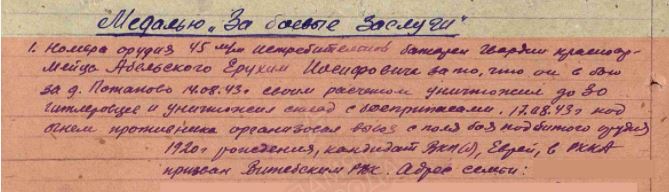 Медалью „За боевые заслуги"
1. Номера орудия 45 м/м истребительной батареи гвардии красноар-
мейца Абельского Ерухим Иосифовича за то, что он в бою
за д. Потапово 14.08.43г своим расчетом уничтожил до 30
гитлеровцев и уничтожил склад с боеприпасами. 17.08.43г под
огнем противника организовал вывоз с поля боя подбитого орудия
1920г рождения, кандидат ВКП(б), Еврей, в РККА
призван Витебским РВК. Адрес семьи: